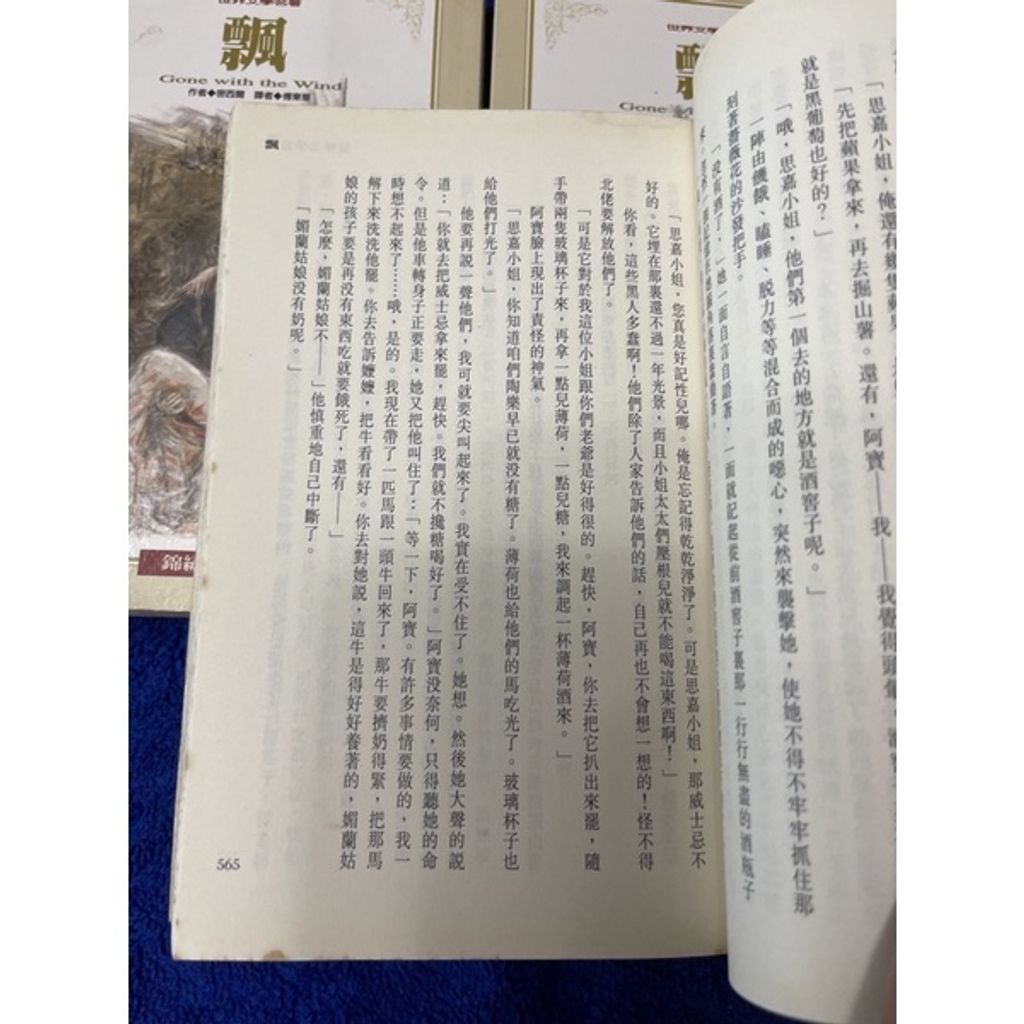 世界文學名著
飄
Gone with the Wind
作者◆密西爾 譯者◆傅東華
錦繡
飄
Gone
「思嘉小姐，俺還有幾隻蘋果
「先把蘋果拿來，再去掘山薯。還有，阿寶——我——我覺得頭暈，
就是黑葡萄也好的？」
「哦，思嘉小姐，他們第一個去的地方就是酒窖子呢。」
一陣由饑餓、瞌睡、脱力等等混合而成的噁心，突然來襲擊她，使她不得不牢牢抓住那
刻著薔薇花的沙發把手。
「没有酒了，」她一面自言自語著，一面就記起從前酒窖子裏那一行行無盡的酒瓶子
飄
「思嘉小姐，您真是好記性兒哪。俺是忘記得乾乾淨淨了。可是思嘉小姐，那威士忌不
好的。它埋在那裏還不過一年光景，而且小姐太太們壓根兒就不能喝這東西啊！」
你看，這些黑人多蠢啊！他們除了人家告訴他們的話，自己再也不會想一想的！怪不得
北佬要解放他們了。
「可是它對於我這位小姐跟你們老爺是好得很的。趕快，阿寶，你去把它扒出來罷，隨
手帶兩隻玻璃杯子來，再拿一點兒薄荷，一點兒糖，我來調起一杯薄荷酒來。」
阿寶臉上現出了責怪的神氣。
「思嘉小姐，你知道咱們陶樂早已就没有糖了。薄荷也給他們的馬吃光了。玻璃杯子也
給他們打光了。」
他要再説一聲他們，我可就要尖叫起來了。我實在受不住了。她想。然後她大聲的説
道：「你就去把威士忌拿來罷，趕快。我們就不攙糖喝好了。」阿寶没奈何，只得聽她的命
令。但是他車轉身子正要走，她又把他叫住了：「等一下，阿寶。有許多事情要做的，我一
時想不起來了……哦，是的。我現在帶了一匹馬跟一頭牛回來了，那牛要擠奶得緊，把那馬
解下來洗洗他罷。你去告訴嬤嬤，把牛看看好。你去對她説，這牛是得好好養著的，媚蘭姑
娘的孩子要是再没有東西吃就要餓死了，還有——」
「怎麼，媚蘭姑娘不——」他慎重地自己中斷了。
「媚蘭姑娘没有奶呢。」
565